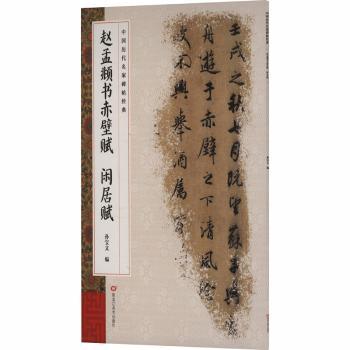 中国历代名家碑帖经典
赵孟頫书赤壁赋 闲居赋
孙宝文 编
黑龙江美术出版社
壬戌之秋七月既望蘇子與
舟遊于赤壁之下清風徐
波不興舉酒屬客